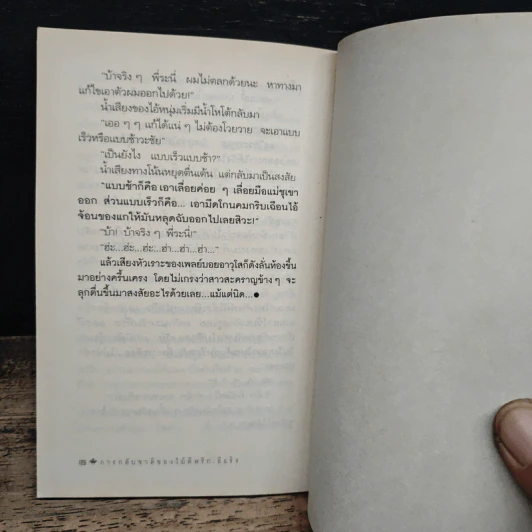 "บ้าจริง ๆ พี่ระนี่ ผมไม่ตลกด้วยนะ หาทางมา
แก้ไขเอาตัวผมออกไปด้วย!"
น้ำเสียงของไอ้หนุ่มเริ่มมีน้ำโหโต้กลับมา
"เออ ๆ ๆ แก้ได้แน่ ๆ ไม่ต้องโวยวาย จะเอาแบบ
เร็วหรือแบบช้าวะชัย"
"เป็นยังไง แบบเร็วแบบช้า?"
น้ำเสียงทางโน้นหยุดตื่นเต้น แต่กลับมาเป็นสงสัย
"แบบช้าก็คือ เอาเลื่อยค่อย ๆ เลื่อยมือแม่ชุเขา
ออก ส่วนแบบเร็วก็คือ... เอามีดโกนคมกริบเฉือนไอ้
จ้อนของแกให้มันหลุดฉับออกไปเลยสิวะ!"
"บ้า! บ้าจริง ๆ พี่ระนี่!"
"ฮ่ะ...ฮ่ะ...ฮ่ะ...ฮ่า...ฮ่า...ฮ่า..."
แล้วเสียงหัวเราะของเพลย์บอยอาวุโสก็ดังลั่นห้องขึ้น
มาอย่างครื้นเครง โดยไม่เกรงว่าสาวสะคราญข้าง ๆ จะ
ลุกตื่นขึ้นมาสงสัยอะไรด้วยเลย...แม้แต่นิด...●